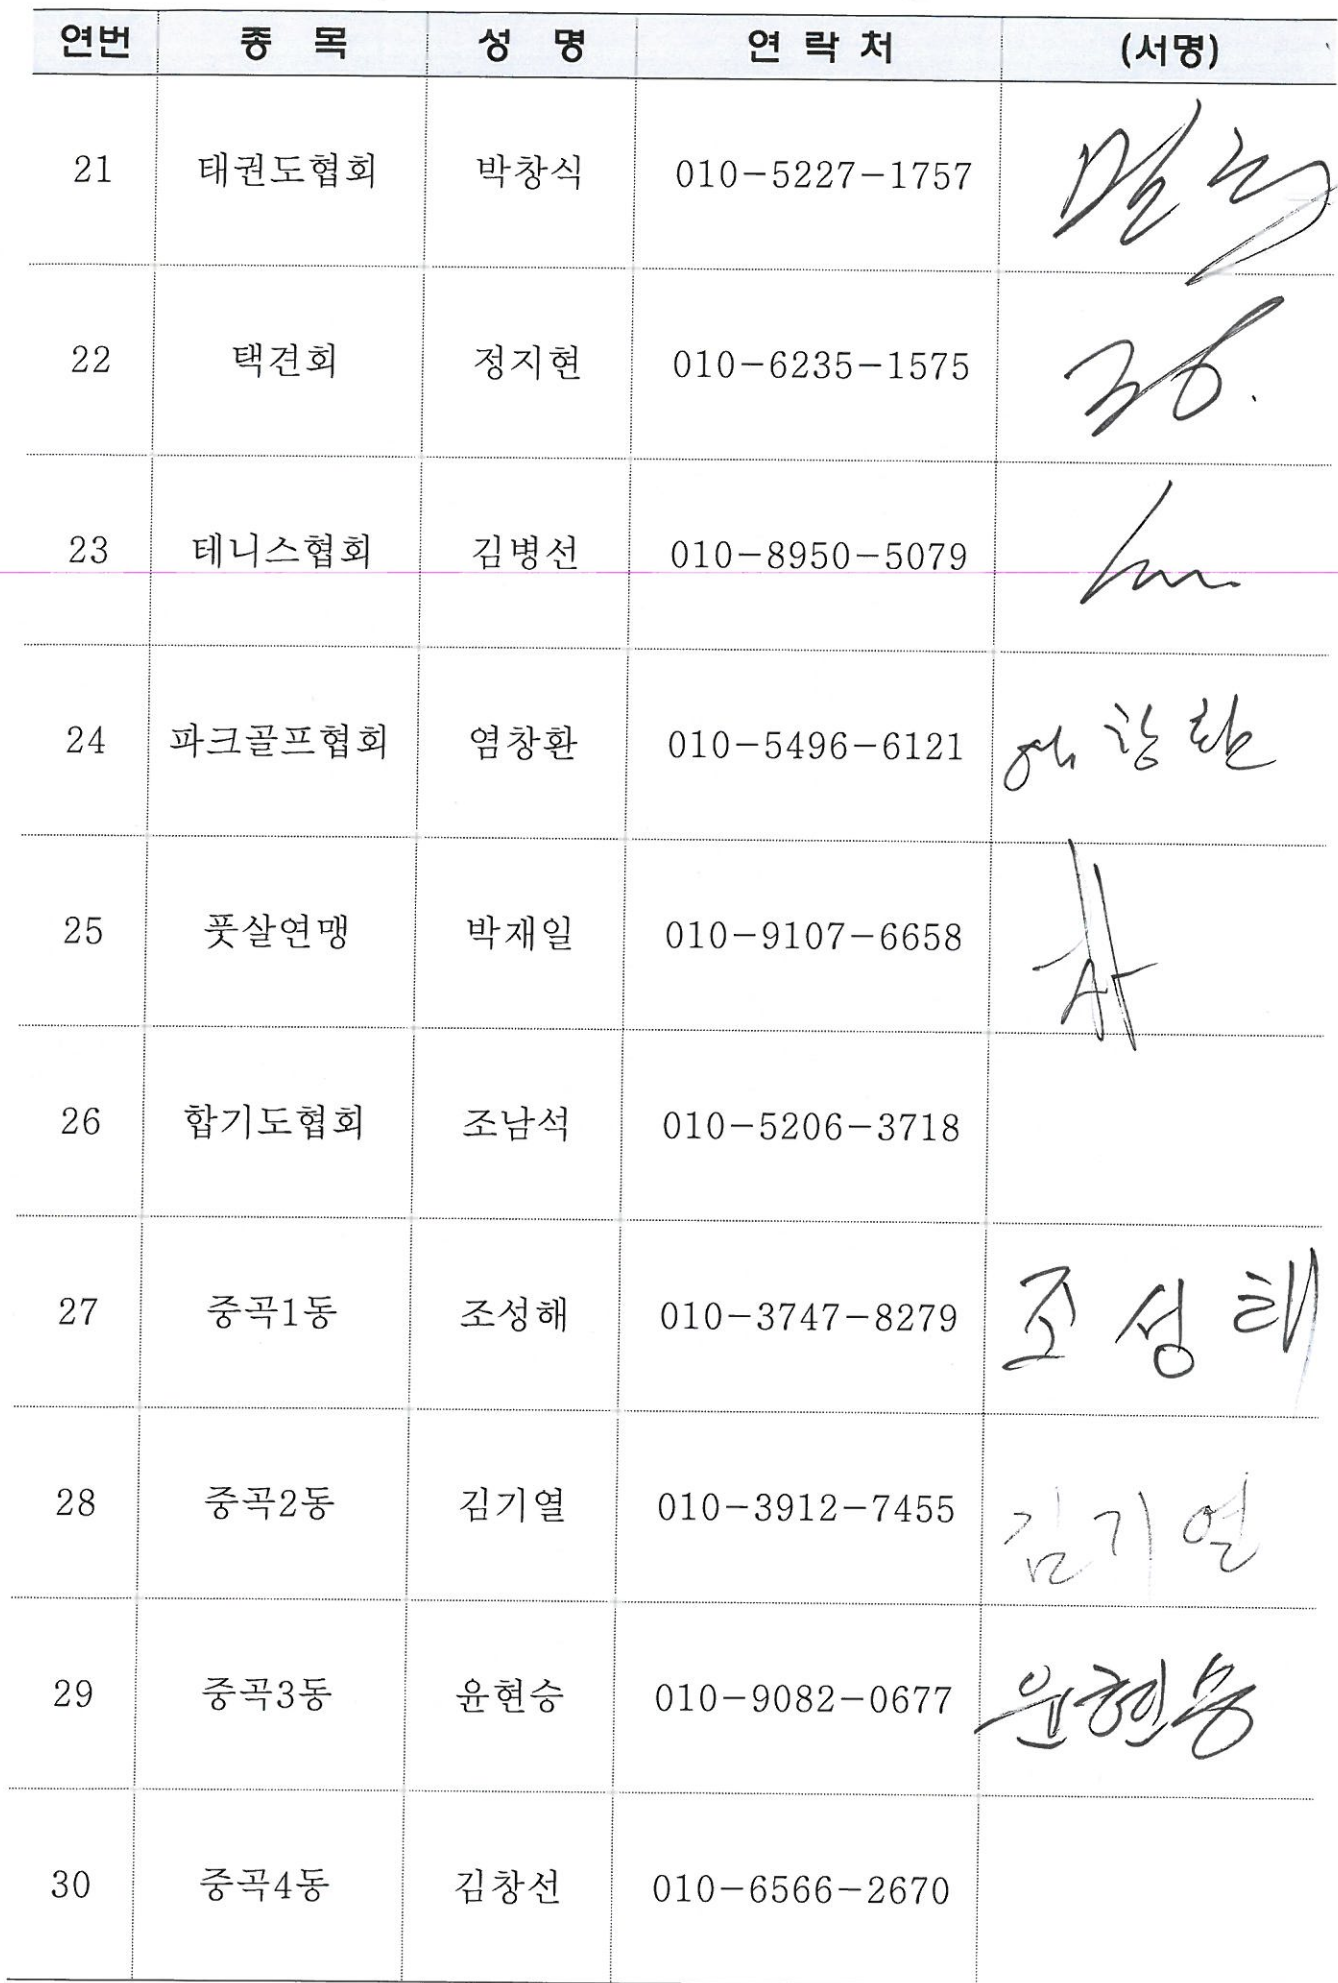 연번 종 목 성 명 연 락 처 (서명)
21 태권도협회 박창식 010-5227-1757
22 택견회 정지현 010-6235-1575
23 테니스협회 김병선 010-8950-5079
24 파크골프협회 염창환 010-5496-6121 창환
25 풋살연맹 박재일 010-9107-6658
26 합기도협회 조남석 010-5206-3718
27 중곡1동 조성해 010-3747-8279 조성해
28 중곡2동 김기열 010-3912-7455 김기열
29 중곡3동 윤현승 010-9082-0677 윤현승
30 중곡4동 김창선 010-6566-2670